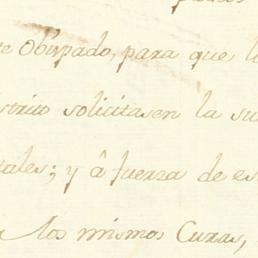 Obispado, para que l
solicitasen la su
ales; y â fuerza de es
los mismos Curas,